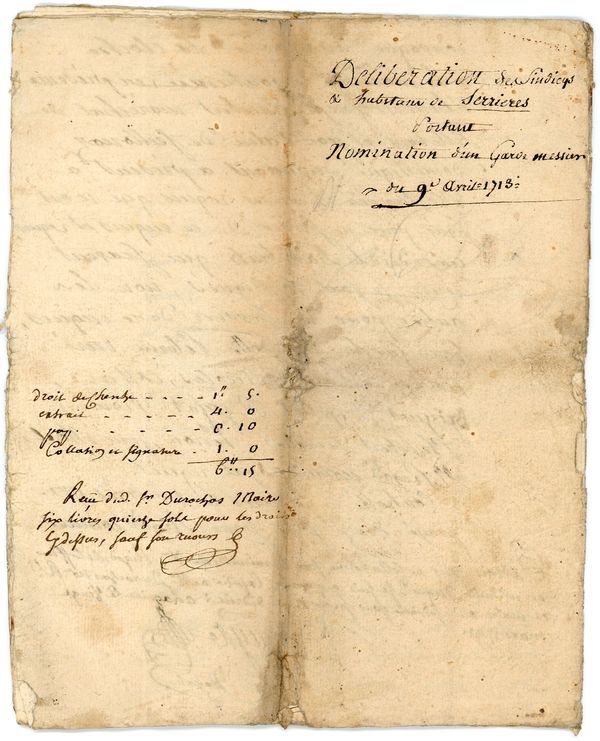 Deliberation des Sindicqs
& habitans de Serrieres
Portant
Nomination d'un Garde messier
du 9e. Avril 1713.
droit de Cherche - - - - 1" 5.
extrait - - - - - - 4. 0
- - - - - 0. 10
Collation et signature - 1. 0
6" 15
Receu dud. Sr. Durochas Maire
six livres quinze sols pour les droits
cydessus, sauf son recours